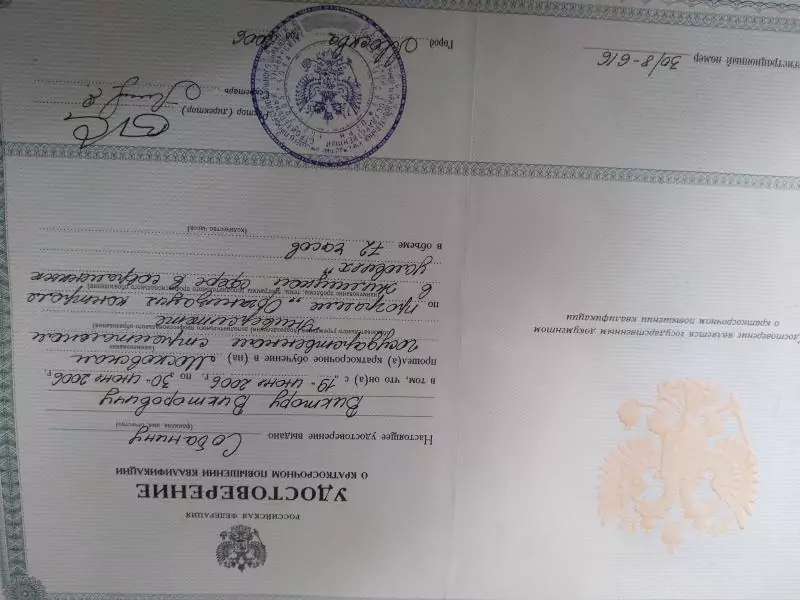 Удостоверение является государственным документом
о краткосрочном повышении квалификации
Регистрационный номер 30/8-616
РОССИЙСКАЯ ФЕДЕРАЦИЯ
УДОСТОВЕРЕНИЕ
О КРАТКОСРОЧНОМ ПОВЫШЕНИИ КВАЛИФИКАЦИИ
Настоящее удостоверение выдано Собанину
(фамилия, имя, отчество)
Виктору Викторовичу
в том, что он(а) с „19" июня 2006 г. по „30" июня 2006 г.
прошел(а) краткосрочное обучение в (на) Московском
(наименование)
государственном строительном
(образовательного учреждения (подразделения) дополнительного профессионального образования)
университете
по программе „Организация контроля
(наименование проблемы, темы, программы дополнительного профессионального образования)
в жилищной сфере в современных
условиях"
в объеме 72 часов
(количество часов)
Ректор (директор)
Секретарь
Город Москва год 2006